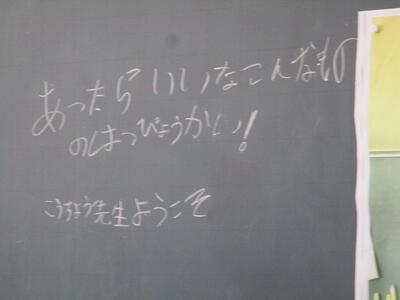 あったらいいなこんなもの
のはっぴょうかい!
こうちょう先生ようこそ